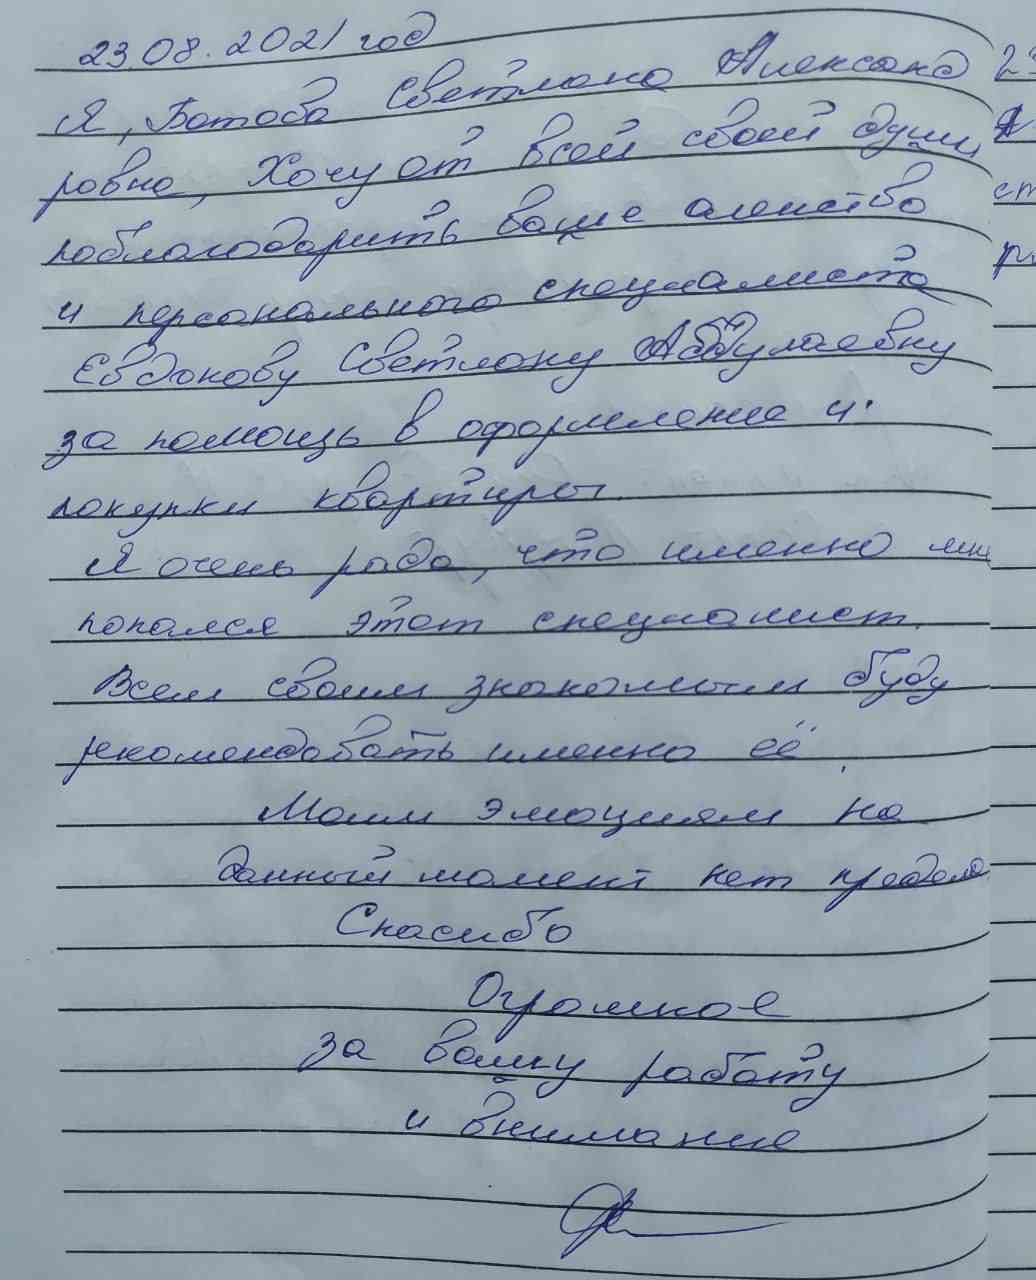 23.08.2021 год
Я, Ботова Светлана Александ
ровна, Хочу от всей своей души
поблагодарить ваше агенство
и персонального специалиста
Евдокову Светлану Абдулаевну
за помощь в оформление и
покупки квартиры.
Я очень рада, что именно мне
попался этот специалист.
Всем своим знакомым буду
рекомендовать именно её.
Моим эмоциям на
данный момент нет предела
Спасибо
Огромное
за вашу работу
и внимание